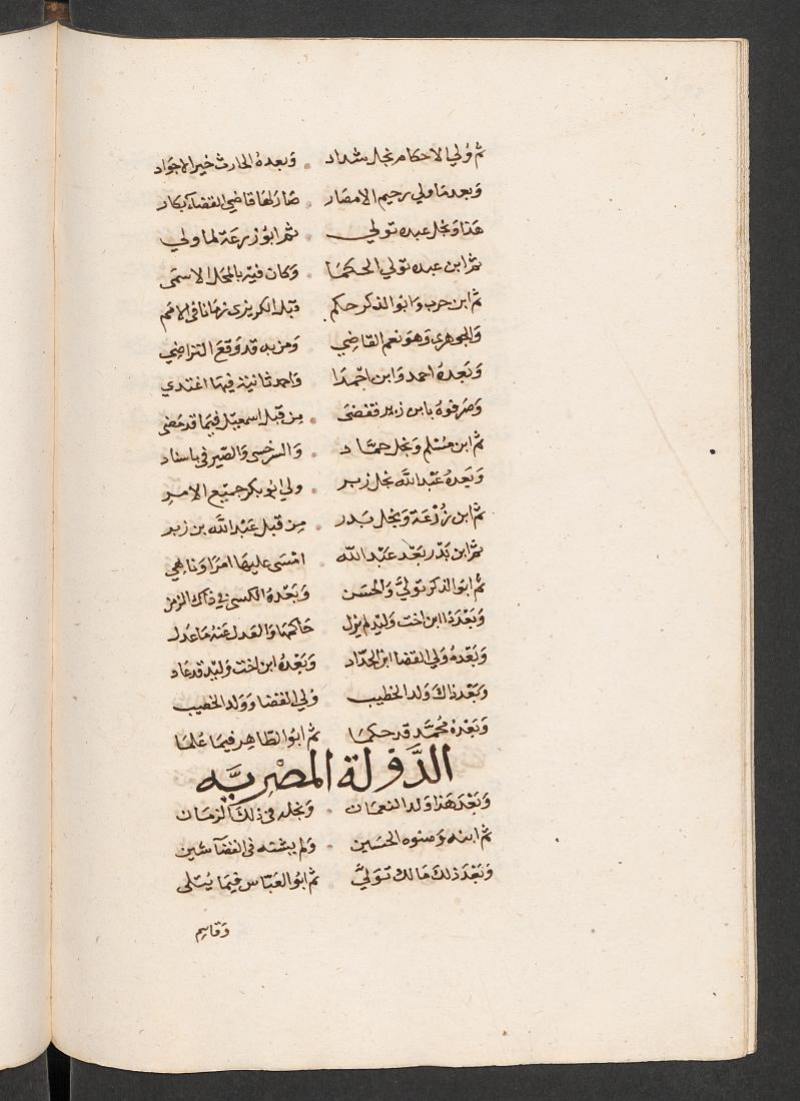 ثم ولي الاحكام نجل شداد وبعده الحارث خير الاجواد
وبعدما ولي رحيم الامصار صار لها قاضي القضاء بكار
هذا ونجل عبده تولي ثم ابو زرعة لما ولي
ثم ابن عبده تولي الحكما وكان فيه بالمحل الاسمى
ثم ابن حرب وابو الذكر حكم قبل الكريزى زمانا فى الامم
والجوهري وهو نعم القاضي ومن به قد وقع التراضي
وبعده احمد وابن احمدا واحمد ثانية فيها اغتدي
وصرفوه بابن زبر فقضى من قبل اسمعيل فيما قد مضى
ثم ابن مسلم ونجل حماد والسرخسى والصير فى باسناد
وبعده عبد الله نجل زبر ولي ابو بكر جميع الامر
ثم ابن زرعة ونجل بدر من قبل عبد الله بن زبر
ثم ابن بدر بعد عبد الله امسى عليها امرا وناهي
ثم ابو الذكر تولى والحسن وبعده الكسى فى ذاك الزمن
وبعده ابن اخت وليد لم يزل حاكمها والعدل عنه ما عدل
وبعده ولي القضا ابن الحداد وبعده ابن اخت وليد قد عاد
وبعد ذاك ولد الخطيب ولي القضا وولد الخصيب
وبعده محمد قد حكما ثم ابو الطاهر فيما علما
الدولة المصريه
وبعد هذا ولد النعمان ونجله فى ذلك الزمان
ثم ابنه وصنوه الحسين ولم يشنه فى القضا شين
وبعد ذلك مالك تولى ثم ابو العباس فيما يتلى
وقاسم